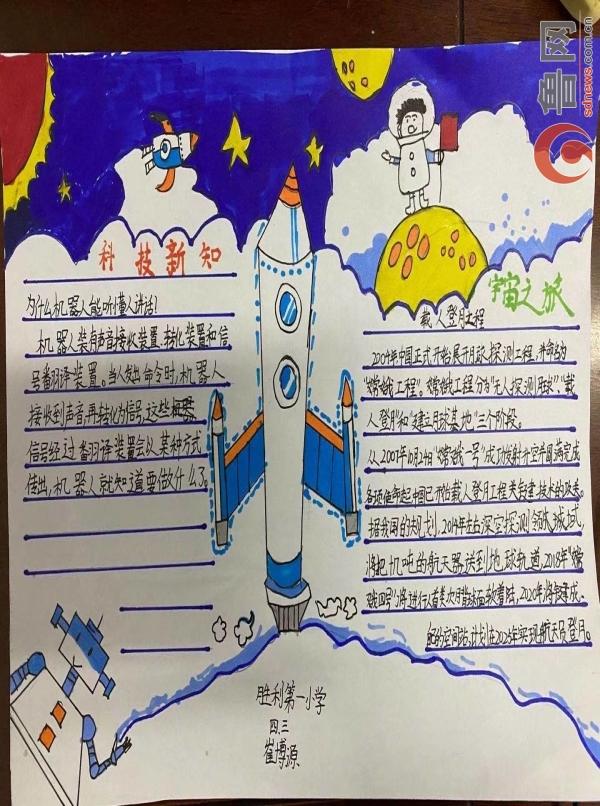 鲁网
sdnews.com.cn
科技新知
为什么机器人能听懂人讲话?
机器人装有声音接收装置、转化装置和信
号翻译装置。当人发出命令时,机器人
接收到声音,再转化为信号,这些
信号经过翻译装置会以某种方式
传出,机器人就知道要做什么了。
宇宙之旅
载人登月工程
2004年中国正式开始展开月球探测工程,并命名为
"嫦娥工程"。嫦娥工程分为"无人探测月球"、"载
人登月"和"建立月球基地"三个阶段。
从2007年10月24日"嫦娥一号"成功发射升空并圆满完成
各项使命起中国已开始载人登月工程关键技术的攻关。
据我国的规划,2014年左右深空探测领域
将把机吨的航天器送到地球轨道,2018年"嫦
娥四号"将进行人类首次月球背面软着陆,2020年将
空间站,计划在2025年实现航天员登月。
胜利第一小学
四.三
崔博源